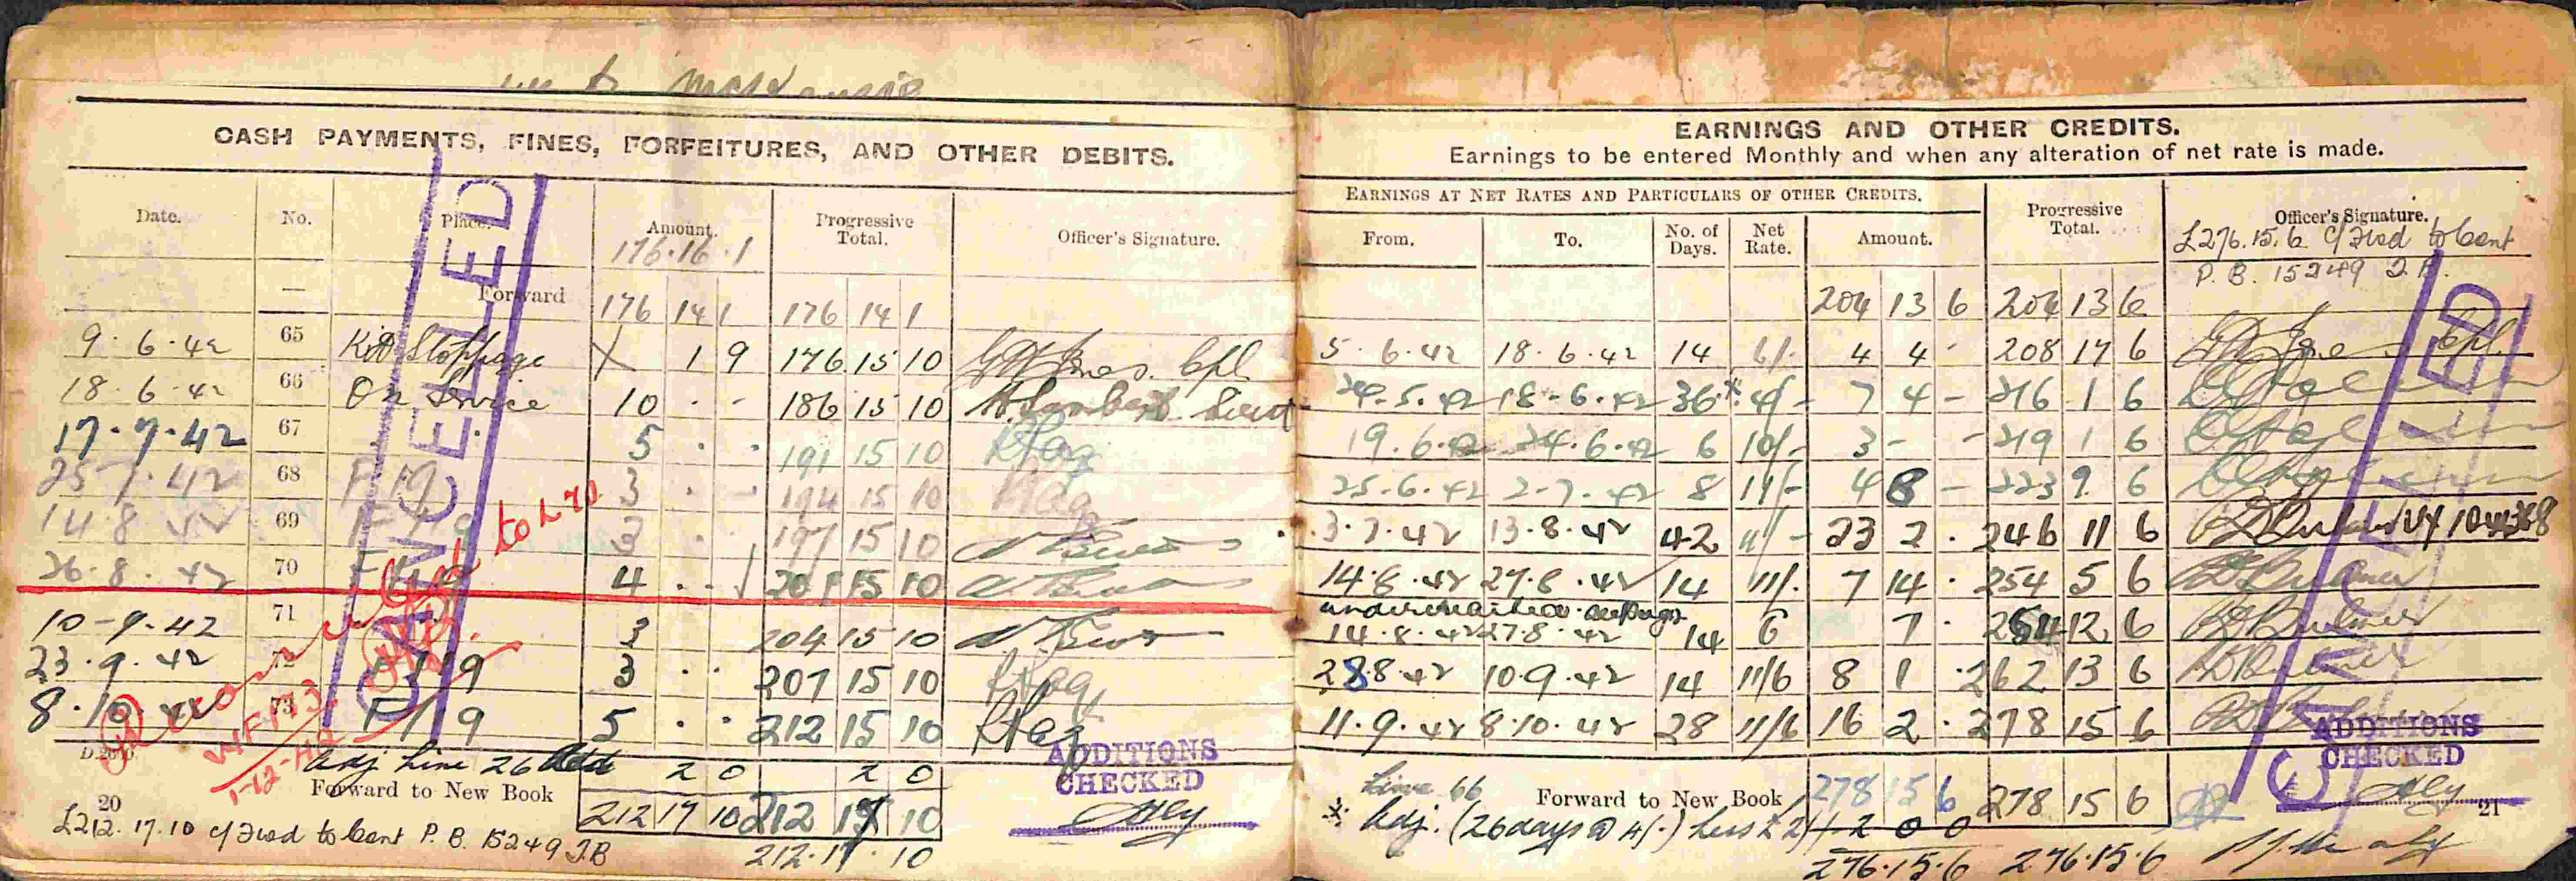 to McKenzie
CASH PAYMENTS, FINES, FORFEITURES, AND OTHER DEBITS.
Date. No. Place. Amount. Progressive Total. Officer's Signature.
176.16.1
— Forward 176 14 1 176 14 1
9.6.42 65 Kit Stoppage 1 9 176 15 10 Jones. Cpl
18.6.42 66 On Service 10 . - 186 15 10
17.7.42 67 5 . . 191 15 10
25.7.42 68 F 19 3 . - 194 15 10
14.8.42 69 F 19 3 . 197 15 10
to L 70
26.8.42 70 4 . - 201 15 10
10-9-42 71 3 204 15 10
23.9.42 F 19 3 . . 207 15 10
8.10.42 73 F/19 5 . . 212 15 10
CANCELLED
WF173
1-12-42
Adj Line 26 Add 2 0 2 0
Forward to New Book 212 17 10 212 17 10
20
£212.17.10 c/fwd to Cont P.B. 15249 J.B
212.17.10
ADDITIONS
CHECKED
EARNINGS AND OTHER CREDITS.
Earnings to be entered Monthly and when any alteration of net rate is made.
EARNINGS AT NET RATES AND PARTICULARS OF OTHER CREDITS.
From. To. No. of Days. Net Rate. Amount. Progressive Total. Officer's Signature.
£276.15.6. c/fwd to Cont
P.B. 15249
204 13 6 204 13 6
5.6.42 18.6.42 14 6/. 4 4 - 208 17 6 Cpl.
24.5.42 18-6.42 36* 4/- 7 4 - 216 1 6
19.6.42 24.6.42 6 10/- 3 - - 219 1 6
25.6.42 2-7.42 8 11/- 4 8 - 223 9 6
3.7.42 13.8.42 42 11/- 23 2 . 246 11 6
14.8.42 27.8.42 14 11/. 7 14 . 254 5 6
14.8.42 27.8.42 14 6 7 . 254 12 6
28.8.42 10.9.42 14 11/6 8 1 . 262 13 6
11.9.42 8.10.42 28 11/6 16 2 . 278 15 6
Line 66 Forward to New Book 278 15 6 278 15 6
* Adj. (26 days @ 4/-) Less £2 2 0 0
276.15.6 276.15.6
ADDITIONS
CHECKED
21